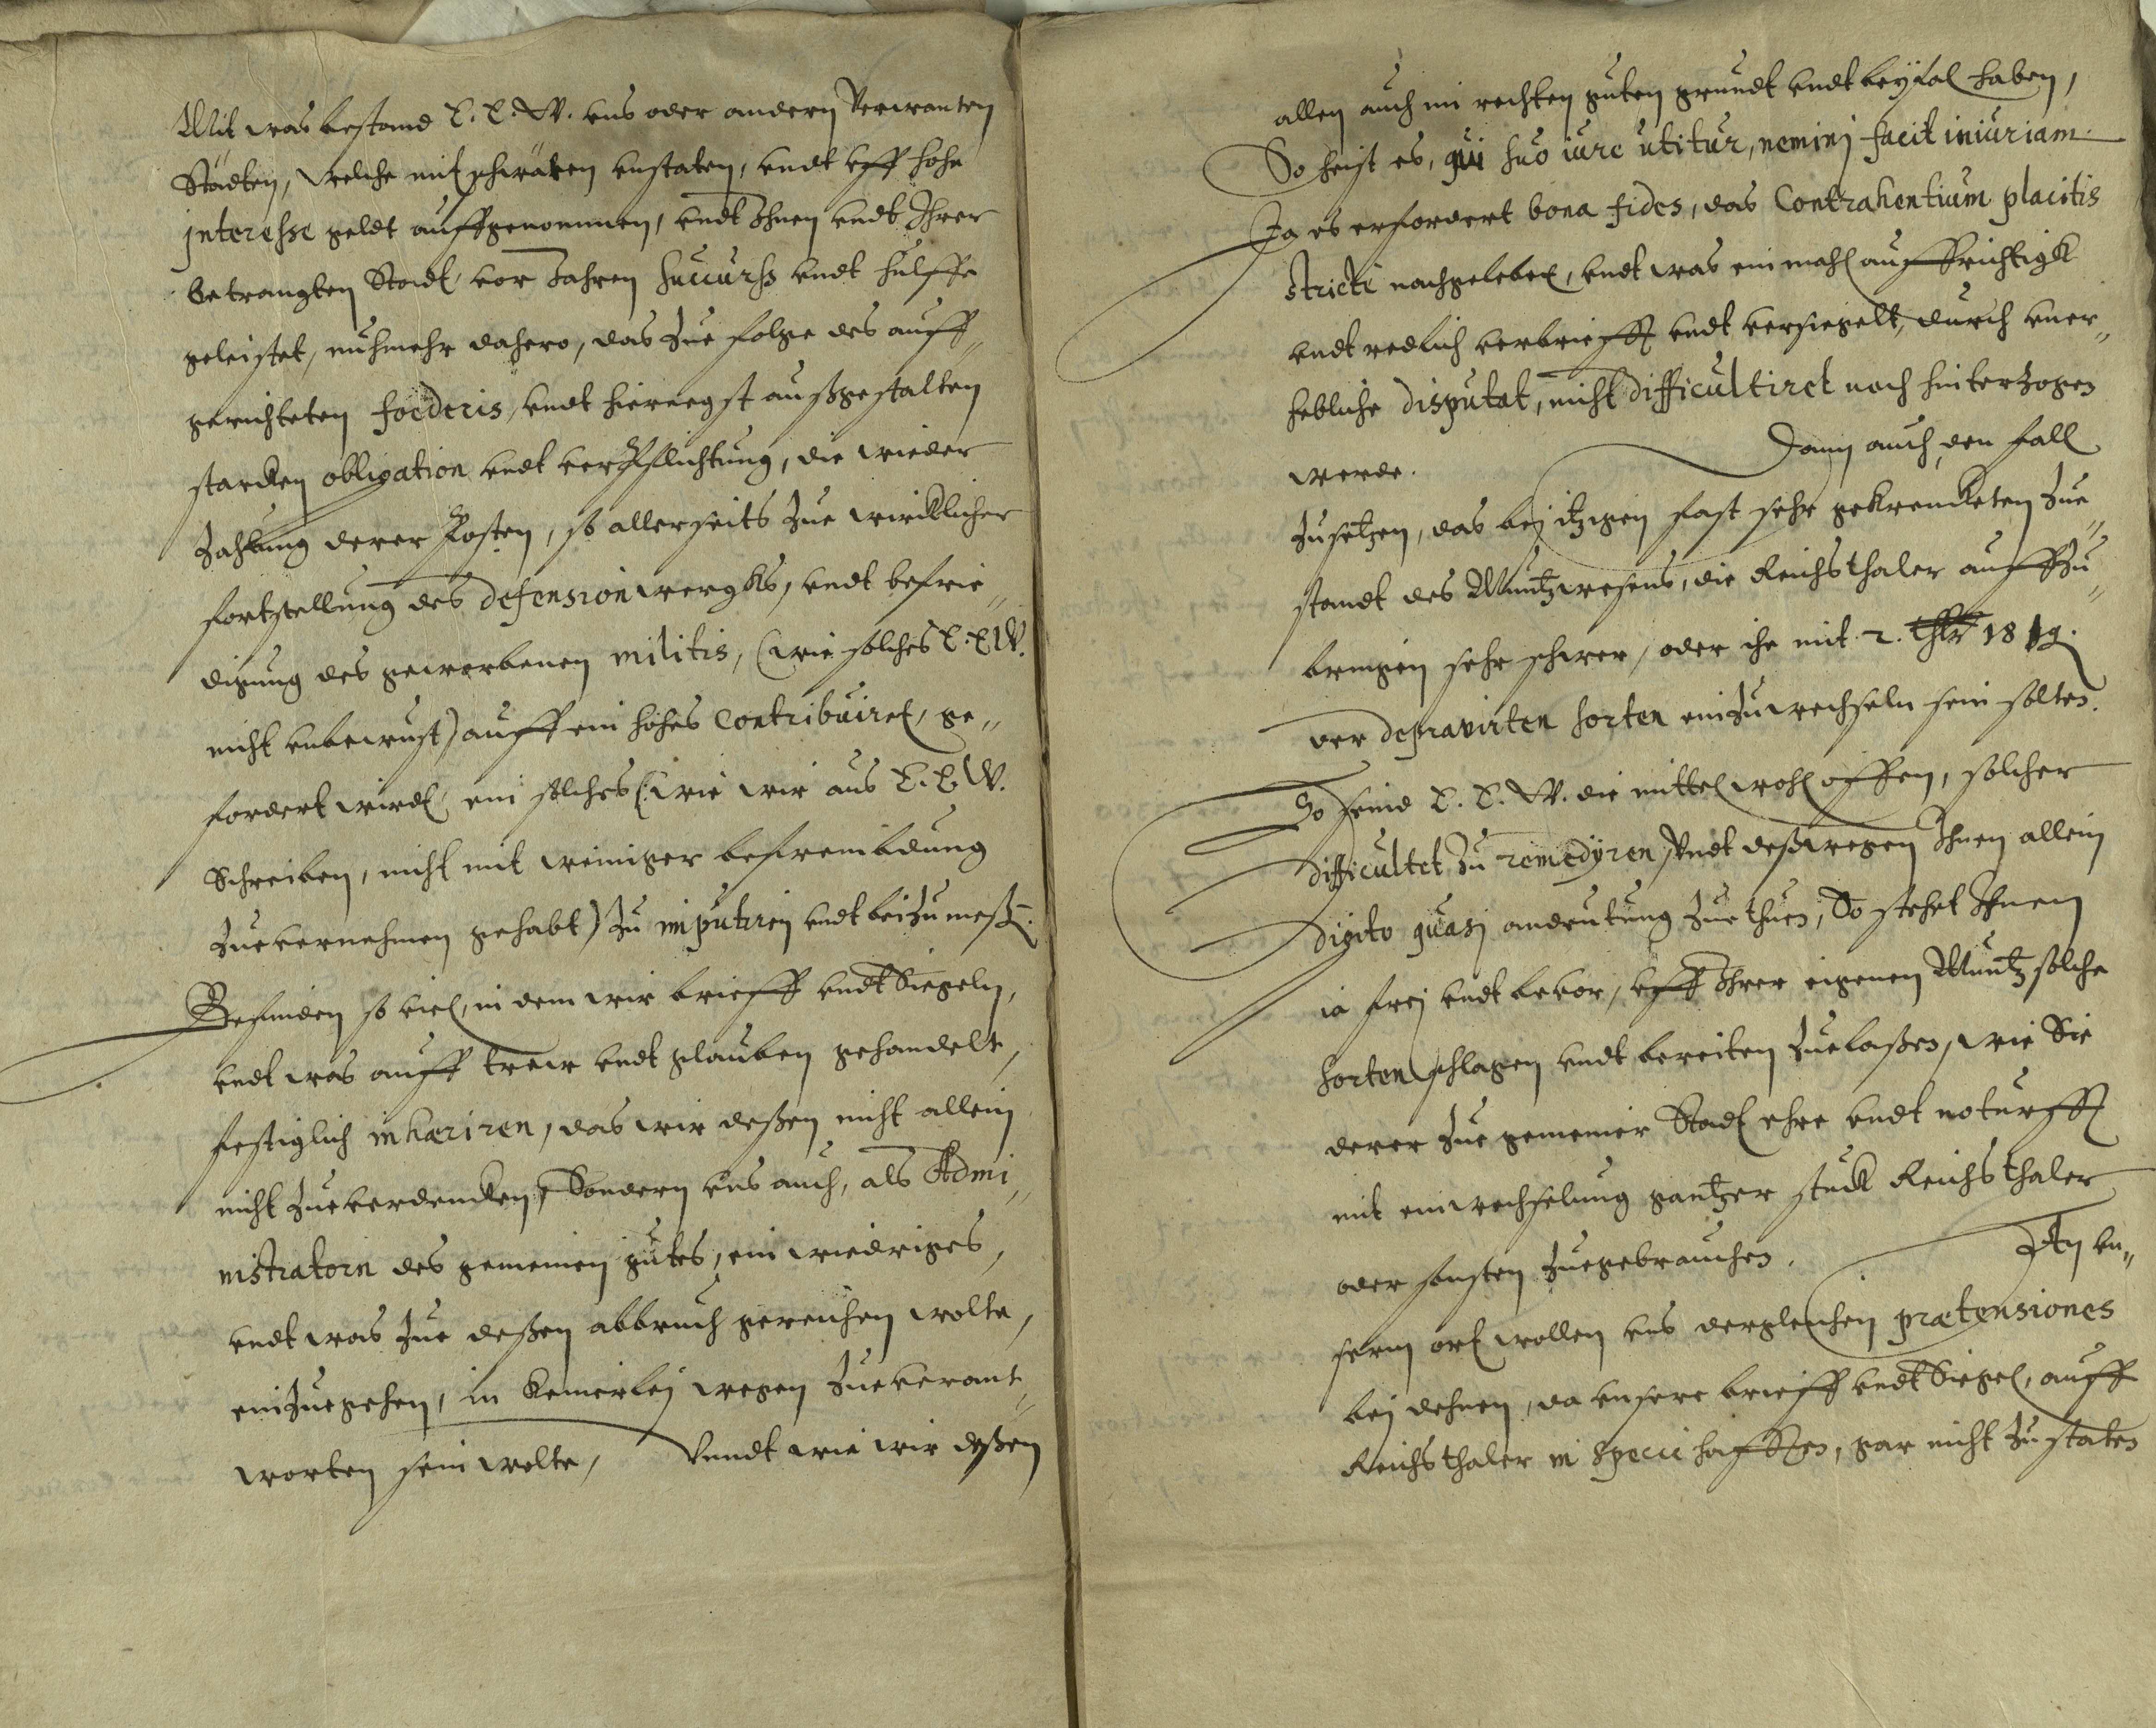 Mit was bestand E. E. W. uns oder andern Verwanten
Städten, welche mit schwären unstaten, undt uff hohe
jnteresse geldt auffgenommen, undt Ihnen undt Ihrer
betrangten Stadt vor Jahren succurß undt hülffe
geleistet, nuhmehr dahero, das zue folge des auff„
gerichteten foederis, undt hiernegst außgestalten
starcken obligation undt verpflichtung, die wieder
zahlung derer Posten, so allerseits zue wircklicher
fortstellung des defension wergks, undt befrie„
digung des geworbenen militis, (wie solches E. E. W.
nicht unbewust) auff ein hohes contribuiret, ge„
fordert wirdt, ein solches (wie wir aus E. E. W.
Schreiben, nicht mit weiniger befrembdung
zuevernehmen gehabt) zu imputiren undt beizumeßen.
Befinden so viel, in dem wir brieff undt Siegeln,
undt was auff trew undt glauben gehandelt,
festiglich inhæriren, das wir deßen nicht allein
nicht zueverdencken, Sondern uns auch, als Admi„
nistratorn des gemeinen gutes, ein wiedriges,
undt was zue deßen abbruch gereichen wolte,
einzuegehen, in keinerley wegen zueverant„
worten sein wolte, Vnndt wie wir deßen
allen auch im rechten guten grundt undt beyfal haben,
So heist es, qui suo iure utitur, nemini facit iniuriam.
Ja es erfordert bona fides, das Contrahentium placitis
stricte nachgelebet, undt was einmahl auffrichtigk
undt redlich verbriefft undt versiegelt, durch uner„
hebliche disputat, nicht difficultiret noch hinterzogen
werde. Dann auch den fall
zusetzen, das bej itzigen fast sehr gekrenckten zue„
standt des Muntzwesens, die Reichsthaler auffzu„
bringen sehr schwer, oder ihe mit 2. thlr 18 g.
der depravirten sorten einzuwechseln sein solten.
So seind E. E. W. die mittel wohl offen, solcher
difficultet zu remedijren, Vndt deßwegen Ihnen allein
digito quasi andeutung zue thuen, So stehet Ihnen
ia frej undt bevor, uff Ihrer eigenen Muntz solche
sorten schlagen undt bereiten zuelaßen, wie Sie
derer zue gemeiner Stadt ehre undt noturfft
mit einwechselung gantzer stuck Reichsthaler
oder sonsten zuegebrauchen. An un„
serm ort wollen uns dergleichen prætensiones
bej dehnen, da unsere brieff undt Siegel, auff
Reichsthaler in specie hafften, gar nicht zu staten